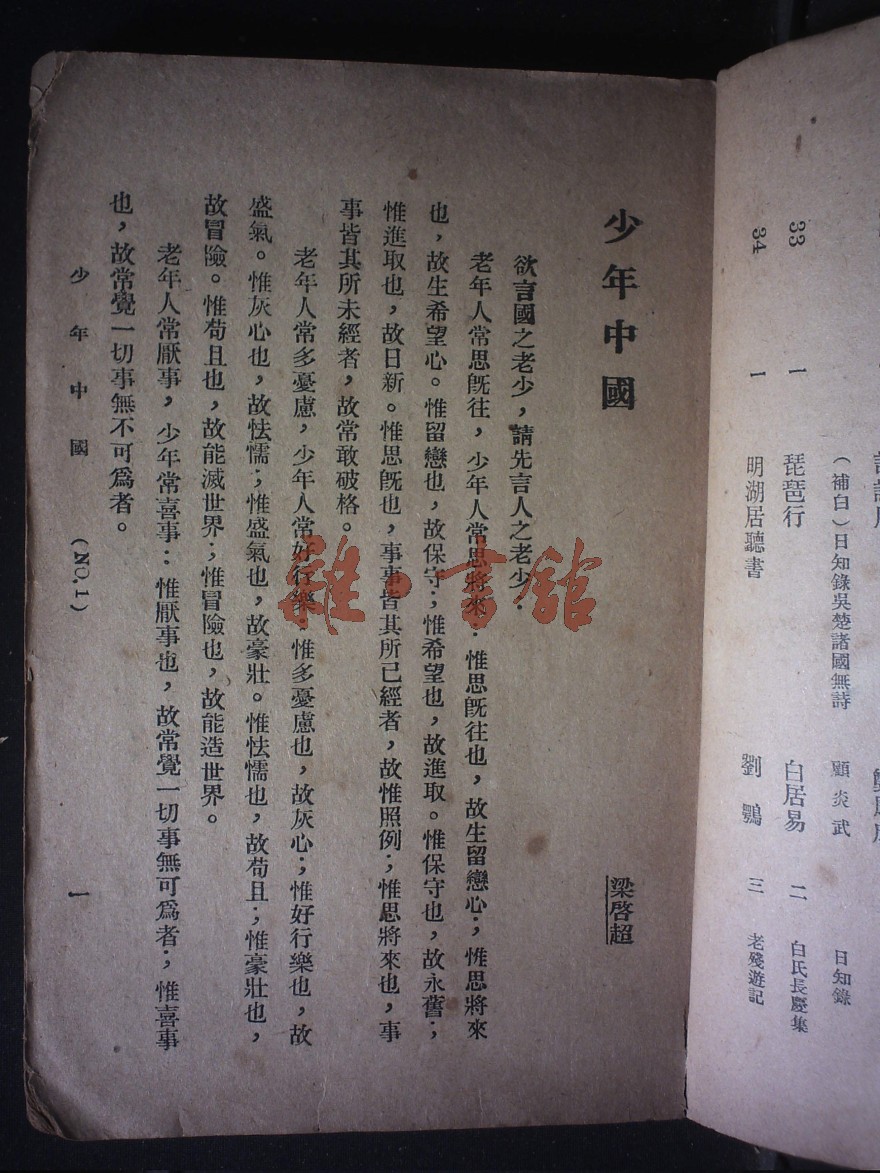 （補白）日知錄吳楚諸國無詩 顧炎武 日知錄
33 — 琵琶行 白居易 二 白氏長慶集
34 — 明湖居聽書 劉鶚 三 老殘遊記
少年中國 梁啓超
欲言國之老少，請先言人之老少：
老年人常思旣往，少年人常思將來：惟思旣往也，故生留戀心；惟思將來
也，故生希望心。惟留戀也，故保守；惟希望也，故進取。惟保守也，故永舊；
惟進取也，故日新。惟思旣也，事事皆其所已經者，故惟照例；惟思將來也，事
事皆其所未經者，故常敢破格。
老年人常多憂慮，少年人常好行樂：惟多憂慮也，故灰心；惟好行樂也，故
盛氣。惟灰心也，故怯懦；惟盛氣也，故豪壯。惟怯懦也，故苟且；惟豪壯也，
故冒險。惟苟且也，故能滅世界；惟冒險也，故能造世界。
老年人常厭事，少年常喜事：惟厭事也，故常覺一切事無可爲者；惟喜事
也，故常覺一切事無不可爲者。
少年中國 （NO.1） 一
雜·書館